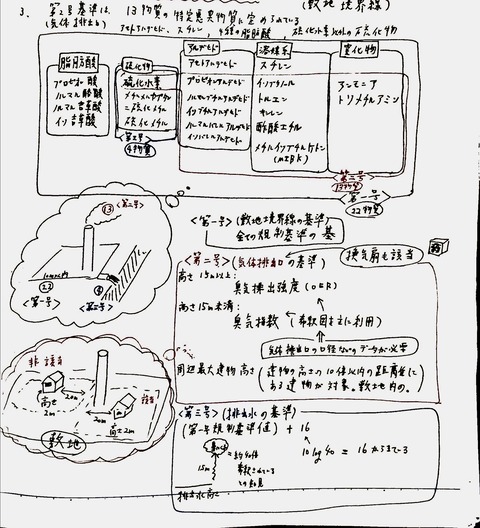 3. 第2号基準は、13物質の特定悪臭物質に定められている
(気体排出口)
(敷地境界線)
アセトアルデヒド、スチレン、4種の脂肪酸、硫化水素以外の硫化物
脂肪酸
プロピオン酸
ノルマル酪酸
ノルマル吉草酸
イソ吉草酸
硫化物
硫化水素
メチルメルカプタン
二硫化メチル
硫化メチル
<第三号>
4物質
アルデヒド
アセトアルデヒド
プロピオンアルデヒド
ノルマルブチルアルデヒド
イソブチルアルデヒド
ノルマルバレルアルデヒド
イソバレルアルデヒド
溶媒系
スチレン
イソブタノール
トルエン
キシレン
酢酸エチル
メチルイソブチルケトン
(MIBK)
窒化物
アンモニア
トリメチルアミン
<第二号>
13物質
<第一号>
22物質
⑬ <第二号>
㉒
<第一号>
④
<第三号>
<第一号> (敷地境界線の基準)
全ての規制基準の基
<第二号> (気体排出口の基準)
換気扇も該当
高さ15m以上:
臭気排出強度 (OER)
高さ15m未満:
臭気指数 (希釈図を主に利用)
気体排出口の口径などのデータが必要
周辺最大建物高さ (建物の高さの10倍以内の距離に
ある建物が対象。敷地内の。)
非該当
高さ
2m
20m
該当
20m
高さ2m
敷地
<第三号> (排出水の基準)
(第一号規制基準値) + 16
10 log 40 = 16 からきている
15m
= 約40倍
希釈されている
との知見
排出水